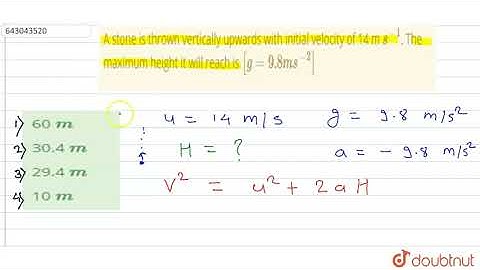 643043520
A stone is thrown vertically upwards with initial velocity of 14 m s⁻¹. The
maximum height it will reach is [g = 9.8ms⁻²]
1) 60 m
2) 30.4 m
3) 29.4 m
4) 10 m
u = 14 m/s g = 9.8 m/s²
H = ? a = - 9.8 m/s²
V² = u² + 2 a H
doubtnut